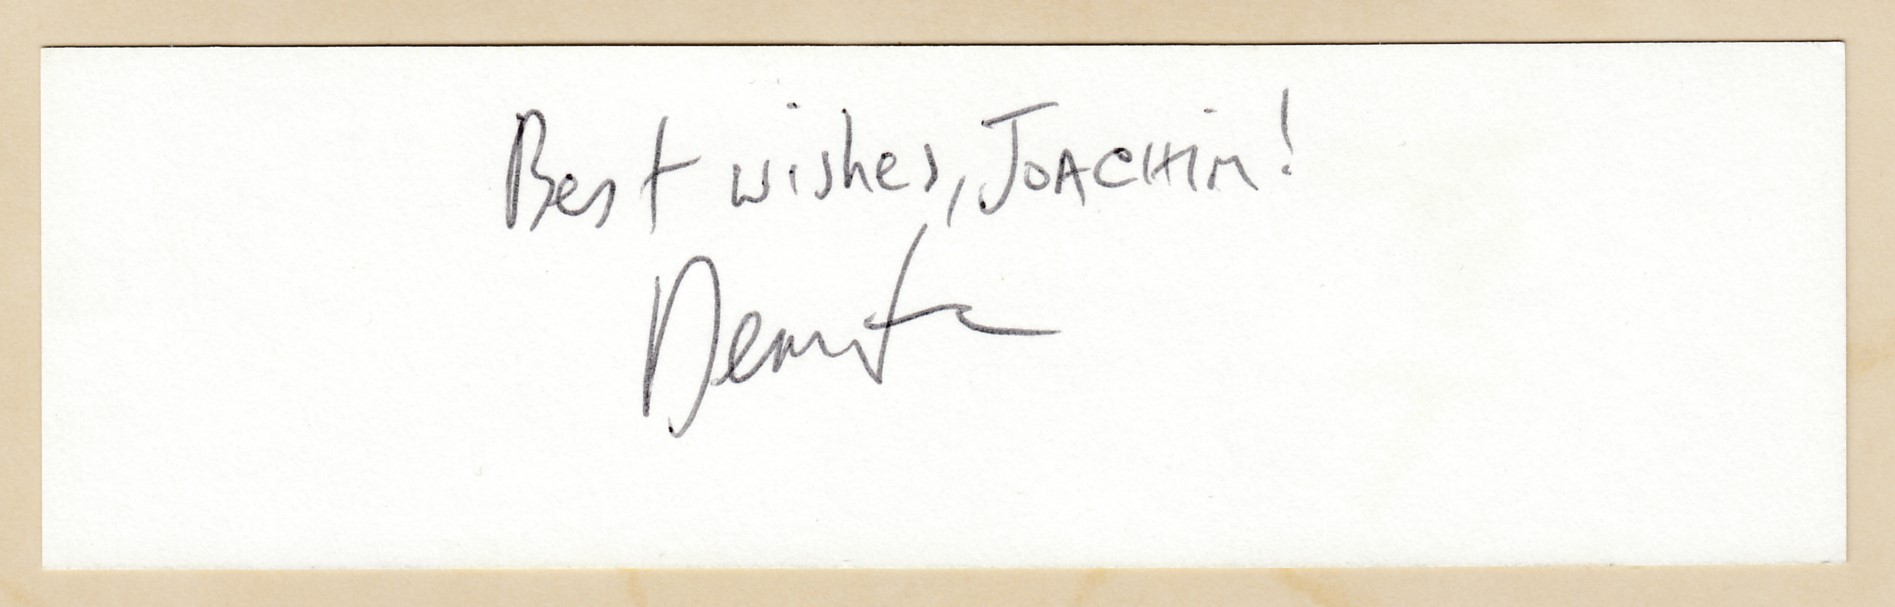 Best wishes, JOACHIM!